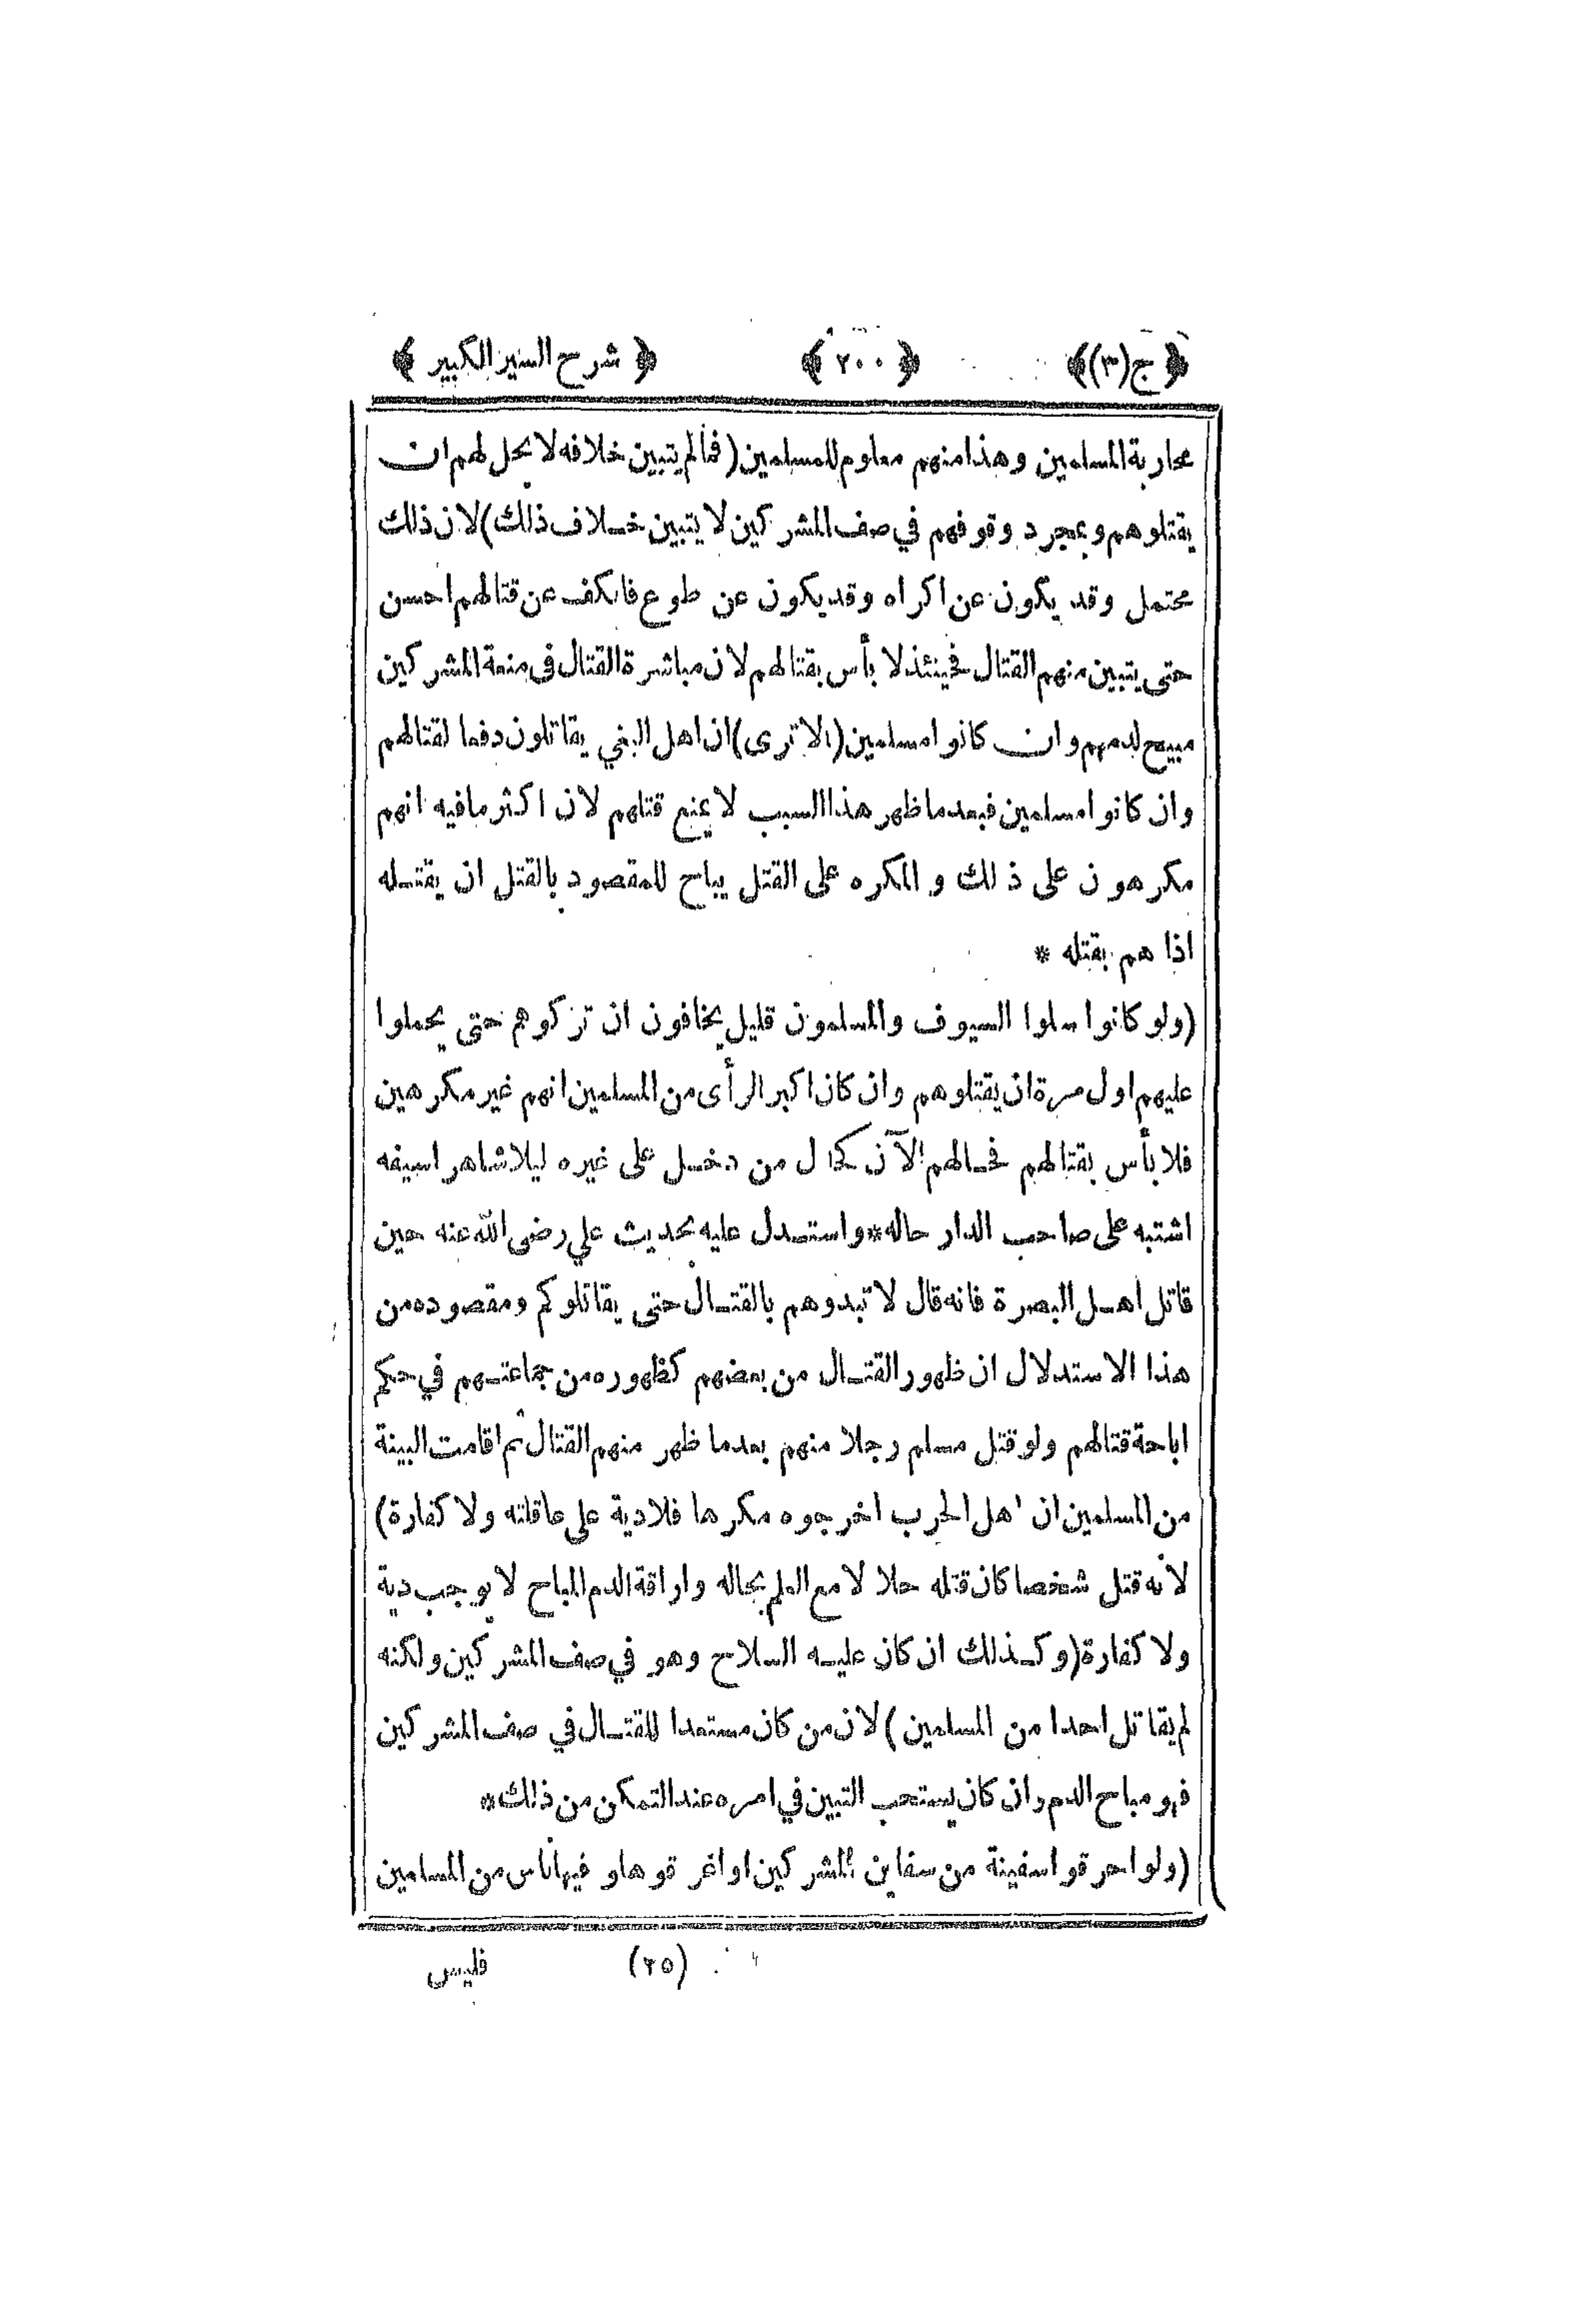 ﴿ ج(٣)﴾ ﴿ ٢٠٠ ﴾ ﴿ شرح السير الكبير ﴾
محاربة المسلمين وهذا منهم معلوم للمسلمين (فما لم يتبين خلافه لا يحل لهم ان
يقتلوهم وبمجرد وقوفهم في صف المشركين لا يتبين خلاف ذلك) لان ذلك
محتمل وقد يكون عن اكراه وقد يكون عن طوع فالكف عن قتالهم احسن
حتى يتبين منهم القتال فحينئذ لا بأس بقتالهم لان مباشرة القتال فى منعة المشركين
مبيح لدمهم وان كانوا مسلمين (الا ترى) ان اهل البغي يقاتلون دفعا لقتالهم
وان كانوا مسلمين فبعد ما ظهر هذا السبب لا يمنع قتلهم لان اكثر ما فيه انهم
مكرهون على ذلك والمكره على القتل يباح للمقصود بالقتل ان يقتله
اذا هم بقتله *
(ولو كانوا سلوا السيوف والمسلمون قليل يخافون ان تركوهم حتى يحملوا
عليهم اول مرة ان يقتلوهم وان كان اكبر الرأى من المسلمين انهم غير مكرهين
فلا بأس بقتالهم فحالهم الآن كحال من دخل على غيره ليلا شاهرا سيفه
اشتبه على صاحب الدار حاله * واستدل عليه بحديث علي رضى الله عنه حين
قاتل اهل البصرة فانه قال لا تبدوهم بالقتال حتى يقاتلوكم ومقصوده من
هذا الاستدلال ان ظهور القتال من بعضهم كظهوره من جماعتهم في حكم
اباحة قتالهم ولو قتل مسلم رجلا منهم بعد ما ظهر منهم القتال ثم اقامت البينة
من المسلمين ان اهل الحرب اخرجوه مكرها فلا دية على عاقلته ولا كفارة)
لانه قتل شخصا كان قتله حلالا مع العلم بحاله واراقة الدم المباح لا يوجب دية
ولا كفارة (وكذلك ان كان عليه السلاح وهو في صف المشركين ولكنه
لم يقاتل احدا من المسلمين) لان من كان مستعدا للقتال في صف المشركين
فهو مباح الدم وان كان يستحب التبين في امره عند التمكن من ذلك *
(ولو احرقوا سفينة من سفاين المشركين او اغرقوها وفيها اناس من المسلمين
(٢٥) فليس